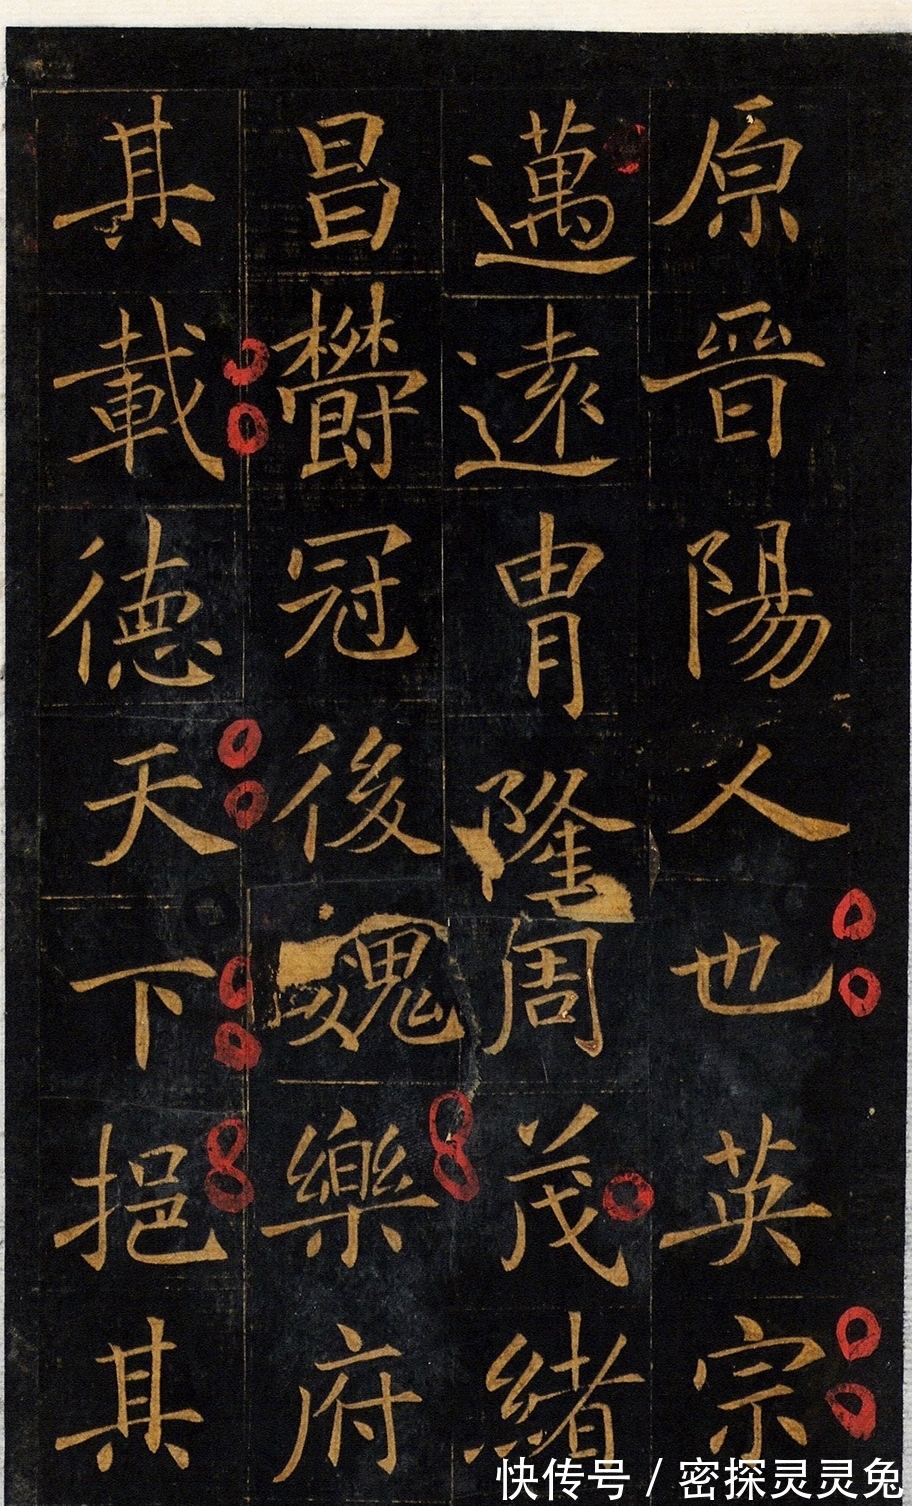 原晉陽人也英宗
邁遠胄隆周茂緒
昌欝冠後魏樂府
其載德天下挹其
快传号 / 密探灵灵兔